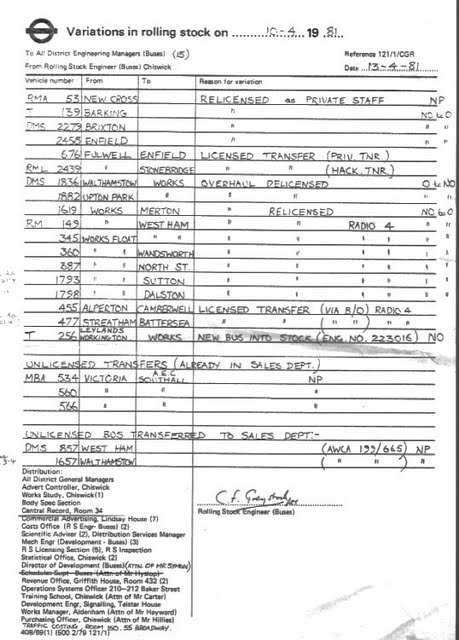 Variations in rolling stock on 10-4 19 81
To All District Engineering Managers (Buses) (15) Reference 121/1/CGR
From Rolling Stock Engineer (Buses) Chiswick Date 13-4-81
Vehicle number From To Reason for variation
RMA 53 NEW CROSS RELICENSED as PRIVATE STAFF NP
T 139 BARKING " NO to O
DMS 2279 BRIXTON " " "
2455 ENFIELD " " "
676 FULWELL ENFIELD LICENSED TRANSFER (PRIV. TNR)
RML 2439 " STONEBRIDGE " " (HACK. TNR.)
DMS 1836 WALTHAMSTOW WORKS OVERHAUL DELICENSED O to NO
1882 UPTON PARK " " " " "
1619 WORKS MERTON " RELICENSED NO to O
RM 149 " WEST HAM " " RADIO 4 " "
345 WORKS FLOAT " " " " " " " "
360 " " WANDSWORTH " " " " " "
387 " " NORTH ST. " " " " " "
1793 " " SUTTON " " " " " "
1798 " " DALSTON " " " " " "
455 ALPERTON CAMBERWELL LICENSED TRANSFER (VIA B/O) RADIO 4
477 STREATHAM BATTERSEA " " ( " " ) " "
T 256 LEYLANDS WORKINGTON WORKS NEW BUS INTO STOCK (ENG. NO. 223016) NO
UNLICENSED TRANSFERS (ALREADY IN SALES DEPT.)
MBA 534 VICTORIA A.E.C SOUTHALL NP
560 " " "
566 " " "
UNLICENSED BUS TRANSFERRED TO SALES DEPT:-
DMS 857 WEST HAM (AWCA 199/665) NP
1657 WALTHAMSTOW ( " " ) "
Distribution:
All District General Managers
Advert Controller, Chiswick
Works Study, Chiswick (1)
Body Spec Section
Central Record, Room 34
Commercial Advertising, Lindsay House (7)
Costs Office (R S Engr- Buses) (2)
Scientific Adviser (2), Distribution Services Manager
Mech Engr (Development - Buses) (3)
R S Licensing Section (5), R S Inspection
Statistical Office, Chiswick (2)
Director of Development (Buses) (ATTN OF MR SIMON)
Schedules Supt - Buses (Attn of Mr Hyslop)
Revenue Office, Griffith House, Room 432 (2)
Operations Systems Officer 210-212 Baker Street
Training School, Chiswick (Attn of Mr Carter)
Development Engr, Signalling, Telstar House
Works Manager, Aldenham (Attn of Mr Hayward)
Purchasing Officer, Chiswick (Attn of Mr Hillies)
TRAFFIC COSTING, ROOM 150. 55 BROADWAY.
408/69(1) (500 2/79 121/1)
Rolling Stock Engineer (Buses)